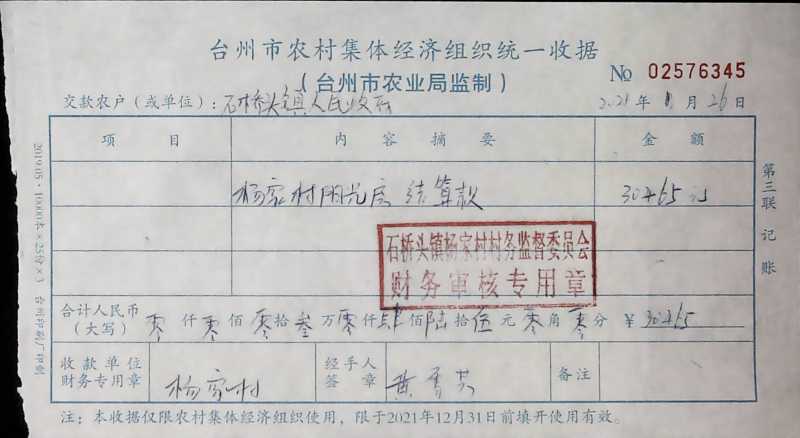 台州市农村集体经济组织统一收据
（台州市农业局监制） No 02576345
交款农户（或单位）：石桥头镇人民政府 2021年 11月 26日
项 目 内 容 摘 要 金 额
杨家村阳光房 结算款 30465元
石桥头镇杨家村村务监督委员会
财务审核专用章
合计人民币（大写） 零仟零佰零拾叁万零仟肆佰陆拾伍元零角零分 ￥30465
收款单位财务专用章 杨家村 经手人签章 黄 备注
注：本收据仅限农村集体经济组织使用，限于2021年12月31日前填开使用有效。
第三联 记账
2019.05·10000本×25份×3 台州印刷厂印制